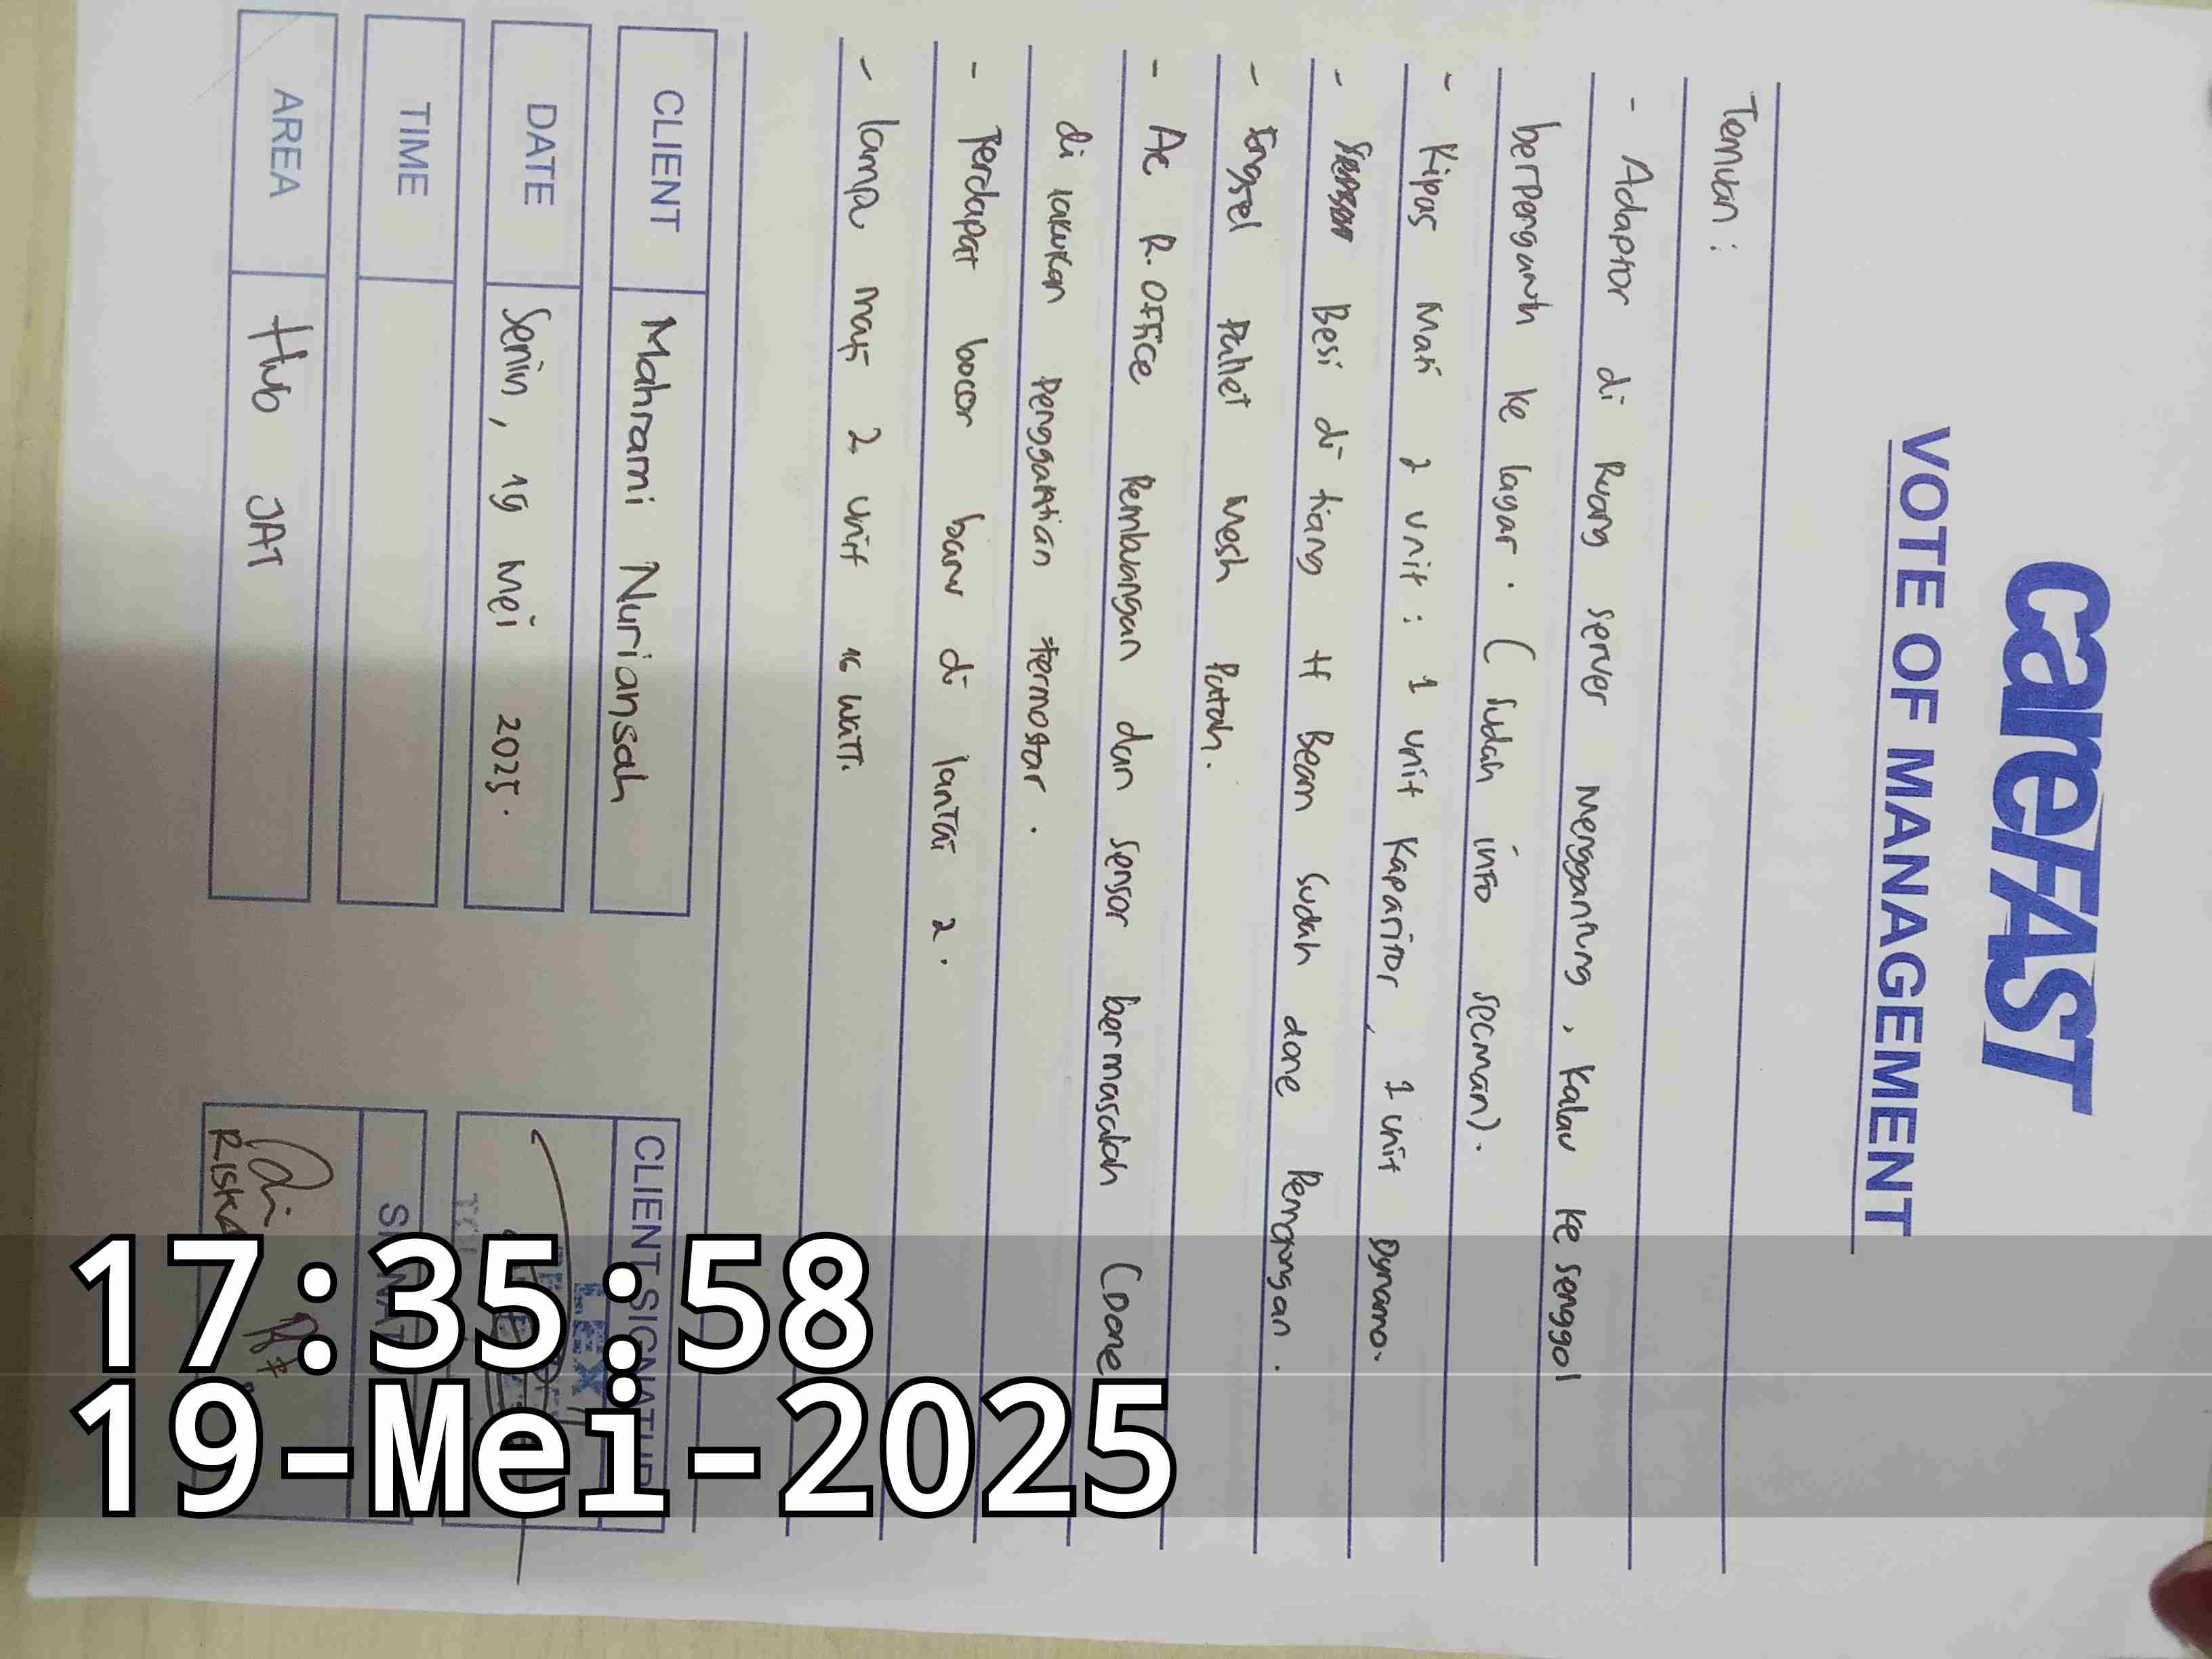 careFAST
VOTE OF MANAGEMENT
Temuan :
- Adaptor di Ruang server Menggantung, Kalau ke senggol
berpengaruh ke layar. (Sudah info secman).
- Kipas Mati 2 unit : 1 unit Kapasitor, 1 unit Dynamo.
- Besi di tiang H Beam Sudah done Pemotongan.
- Engsel Pallet Mesh Patah.
- Ac R. Office Pembuangan dan Sensor bermasalah (Done
di lakukan Penggantian Termostar.
- Terdapat bocor baru di lantai 2.
- lampu mati 2 unit 16 watt.
CLIENT Mahrami Nuriansah
DATE Senin, 19 Mei 2025.
TIME
AREA Hub JAT
CLIENT SIGNATUR
LEX
RISKA
17:35:58
19-Mei-2025